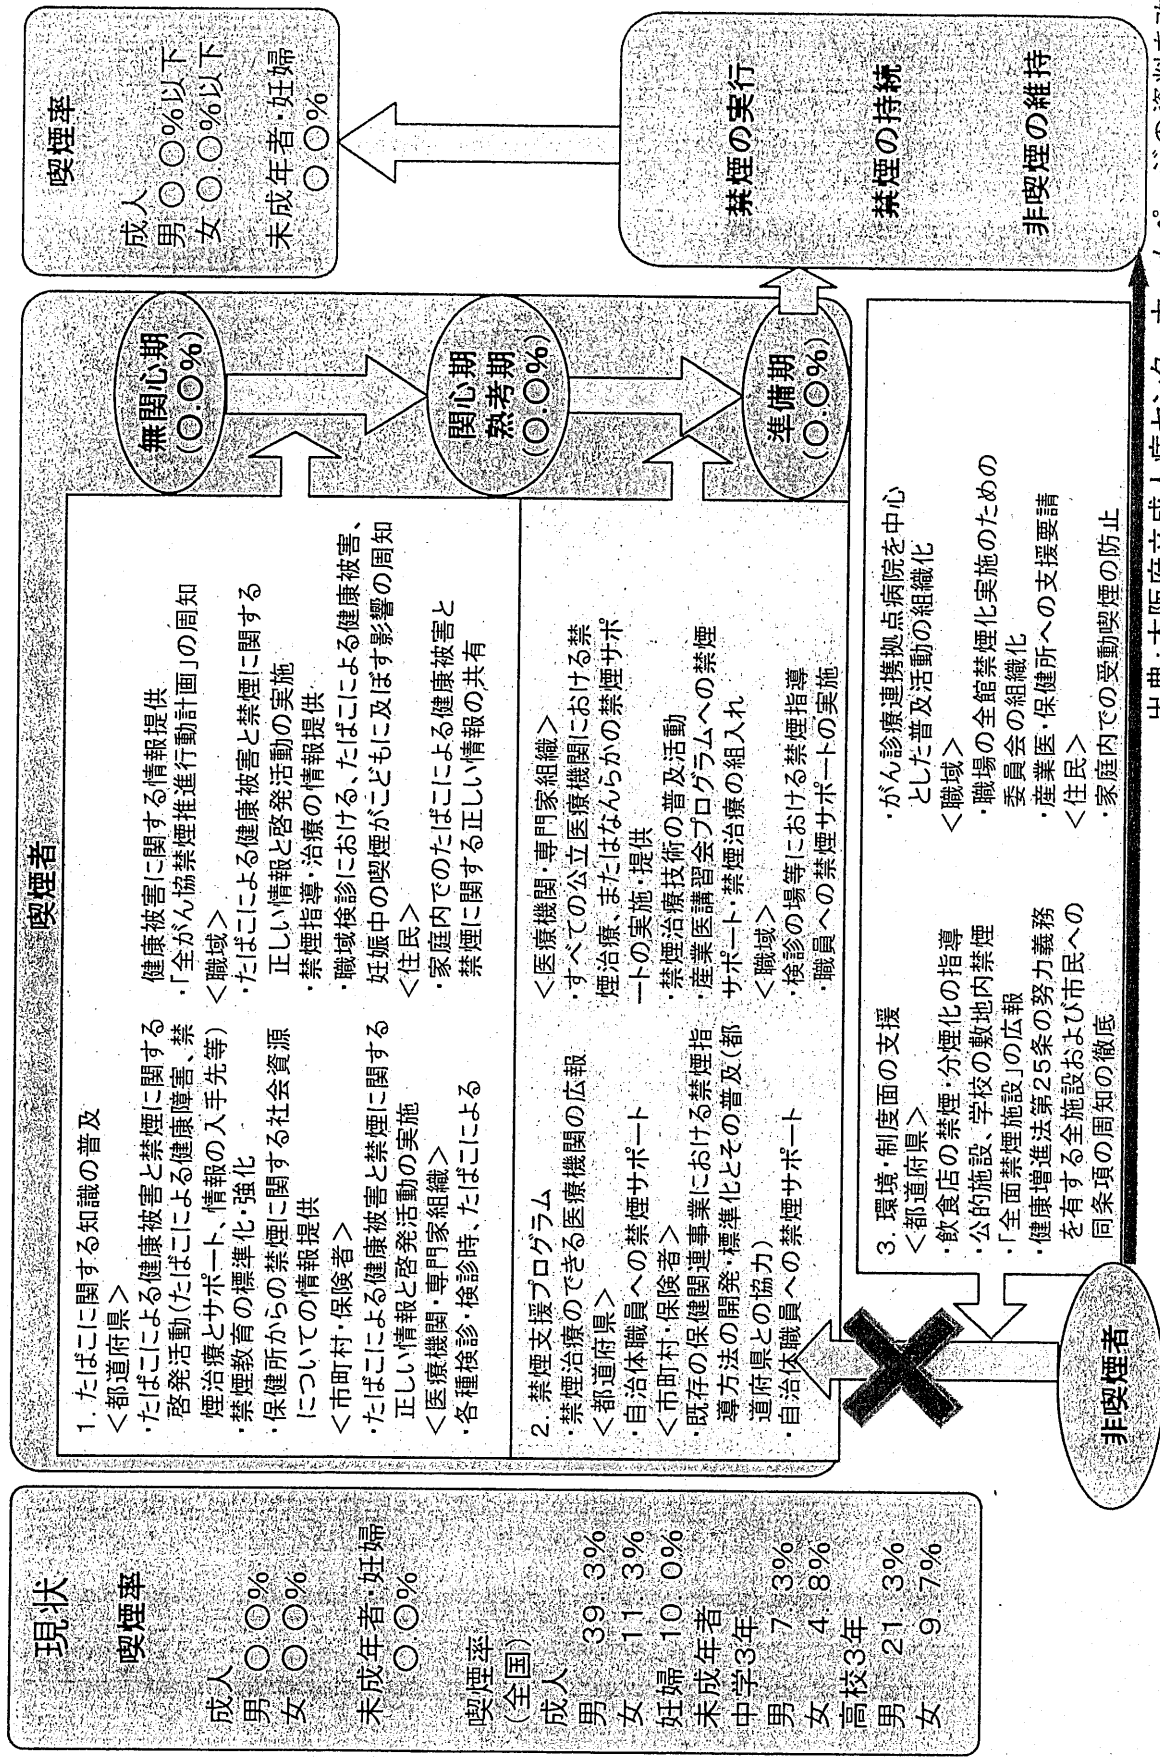 現状
喫煙率
成人
男 〇〇%
女 〇〇%
未成年者・妊婦
〇〇%
喫煙率
(全国)
成人
男 39.3%
女 11.3%
妊婦 10.0%
未成年者
中学3年
男 7.3%
女 4.8%
高校3年
男 21.3%
女 9.7%
喫煙者
1. たばこに関する知識の普及
<都道府県>
・たばこによる健康被害と禁煙に関する
啓発活動(たばこによる健康障害、禁
煙治療とサポート、情報の入手先等)
・禁煙教育の標準化・強化
・保健所からの禁煙に関する社会資源
についての情報提供
<市町村・保険者>
・たばこによる健康被害と禁煙に関する
正しい情報と啓発活動の実施
<医療機関・専門家組織>
・各種検診・検診時、たばこによる
健康被害に関する情報提供
・「全がん協禁煙推進行動計画」の周知
<職域>
・たばこによる健康被害と禁煙に関する
正しい情報と啓発活動の実施
・禁煙指導・治療の情報提供
・職域検診における、たばこによる健康被害、
妊娠中の喫煙がこどもに及ぼす影響の周知
<住民>
・家庭内でのたばこによる健康被害と
禁煙に関する正しい情報の共有
2. 禁煙支援プログラム
・禁煙治療のできる医療機関の広報
<都道府県>
・自治体職員への禁煙サポート
<市町村・保険者>
・既存の保健関連事業における禁煙指
導方法の開発・標準化とその普及(都
道府県との協力)
・自治体職員への禁煙サポート
<医療機関・専門家組織>
・すべての公立医療機関における禁
煙治療、またはなんらかの禁煙サポ
ートの実施・提供
・禁煙治療技術の普及活動
・産業医講習会プログラムへの禁煙
サポート・禁煙治療の組入れ
<職域>
・検診の場等における禁煙指導
・職員への禁煙サポートの実施
3. 環境・制度面の支援
<都道府県>
・飲食店の禁煙・分煙化の指導
・公的施設、学校の敷地内禁煙
・「全面禁煙施設」の広報
・健康増進法第25条の努力義務
を有する全施設および市民への
同条項の周知の徹底
・がん診療連携拠点病院を中心
とした普及活動の組織化
<職域>
・職場の全館禁煙化実施のための
委員会の組織化
・産業医・保健所への支援要請
<住民>
・家庭内での受動喫煙の防止
非喫煙者
無関心期
(〇.〇%)
関心期
熟考期
(〇.〇%)
準備期
(〇.〇%)
喫煙率
成人
男 〇〇%以下
女 〇.〇%以下
未成年者・妊婦
〇.〇%
禁煙の実行
禁煙の持続
非喫煙の維持